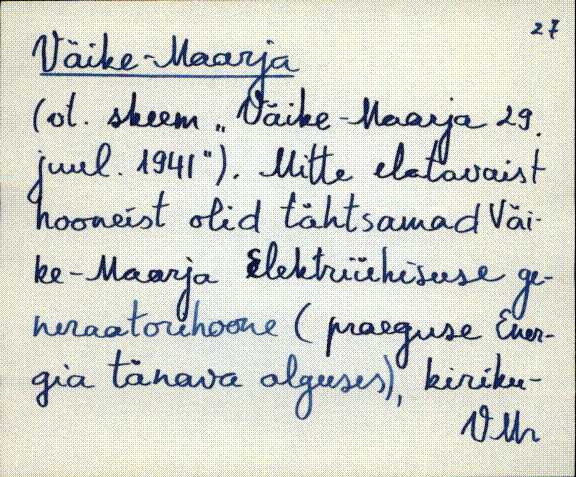 27
Väike-Maarja
(vt. skeem „Väike-Maarja 29.
juul. 1941"). Mitte elatavaist
hooneist olid tähtsamad Väi-
ke-Maarja Elektriühisuse ge-
neraatorihoone (praeguse Ener-
gia tänava alguses), kiriku-
VMr